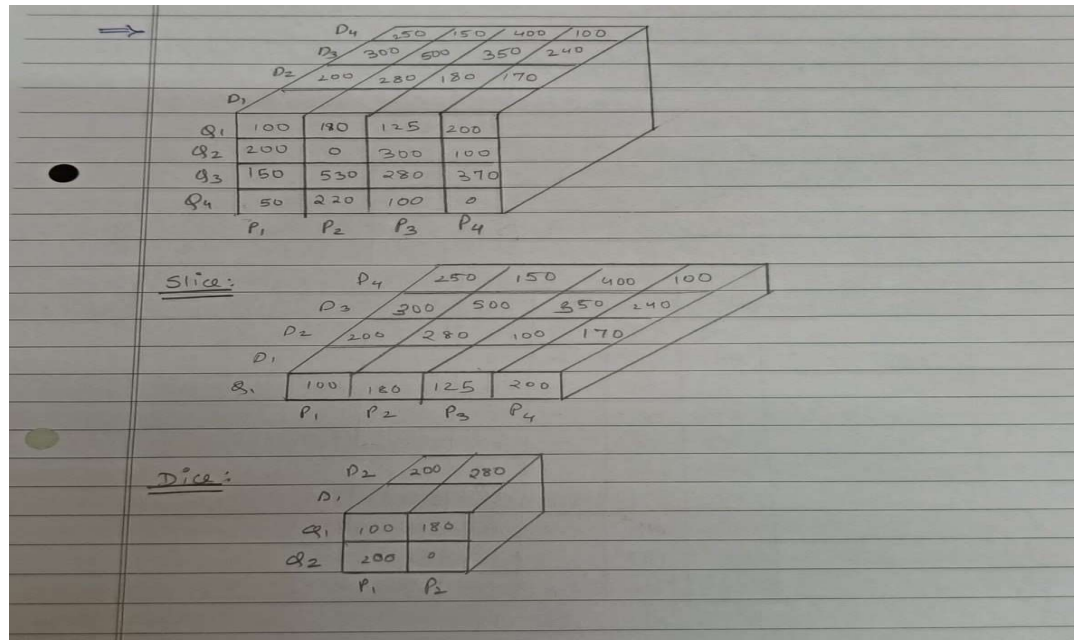 ⇒
D4 250 150 400 100
D3 300 500 350 240
D2 200 280 180 170
D1
Q1 100 180 125 200
Q2 200 0 300 100
Q3 150 530 280 370
Q4 50 220 100 0
P1 P2 P3 P4
Slice:
D4 250 150 400 100
D3 300 500 350 240
D2 200 280 100 170
D1
Q1 100 180 125 200
P1 P2 P3 P4
Dice:
D2 200 280
D1
Q1 100 180
Q2 200 0
P1 P2